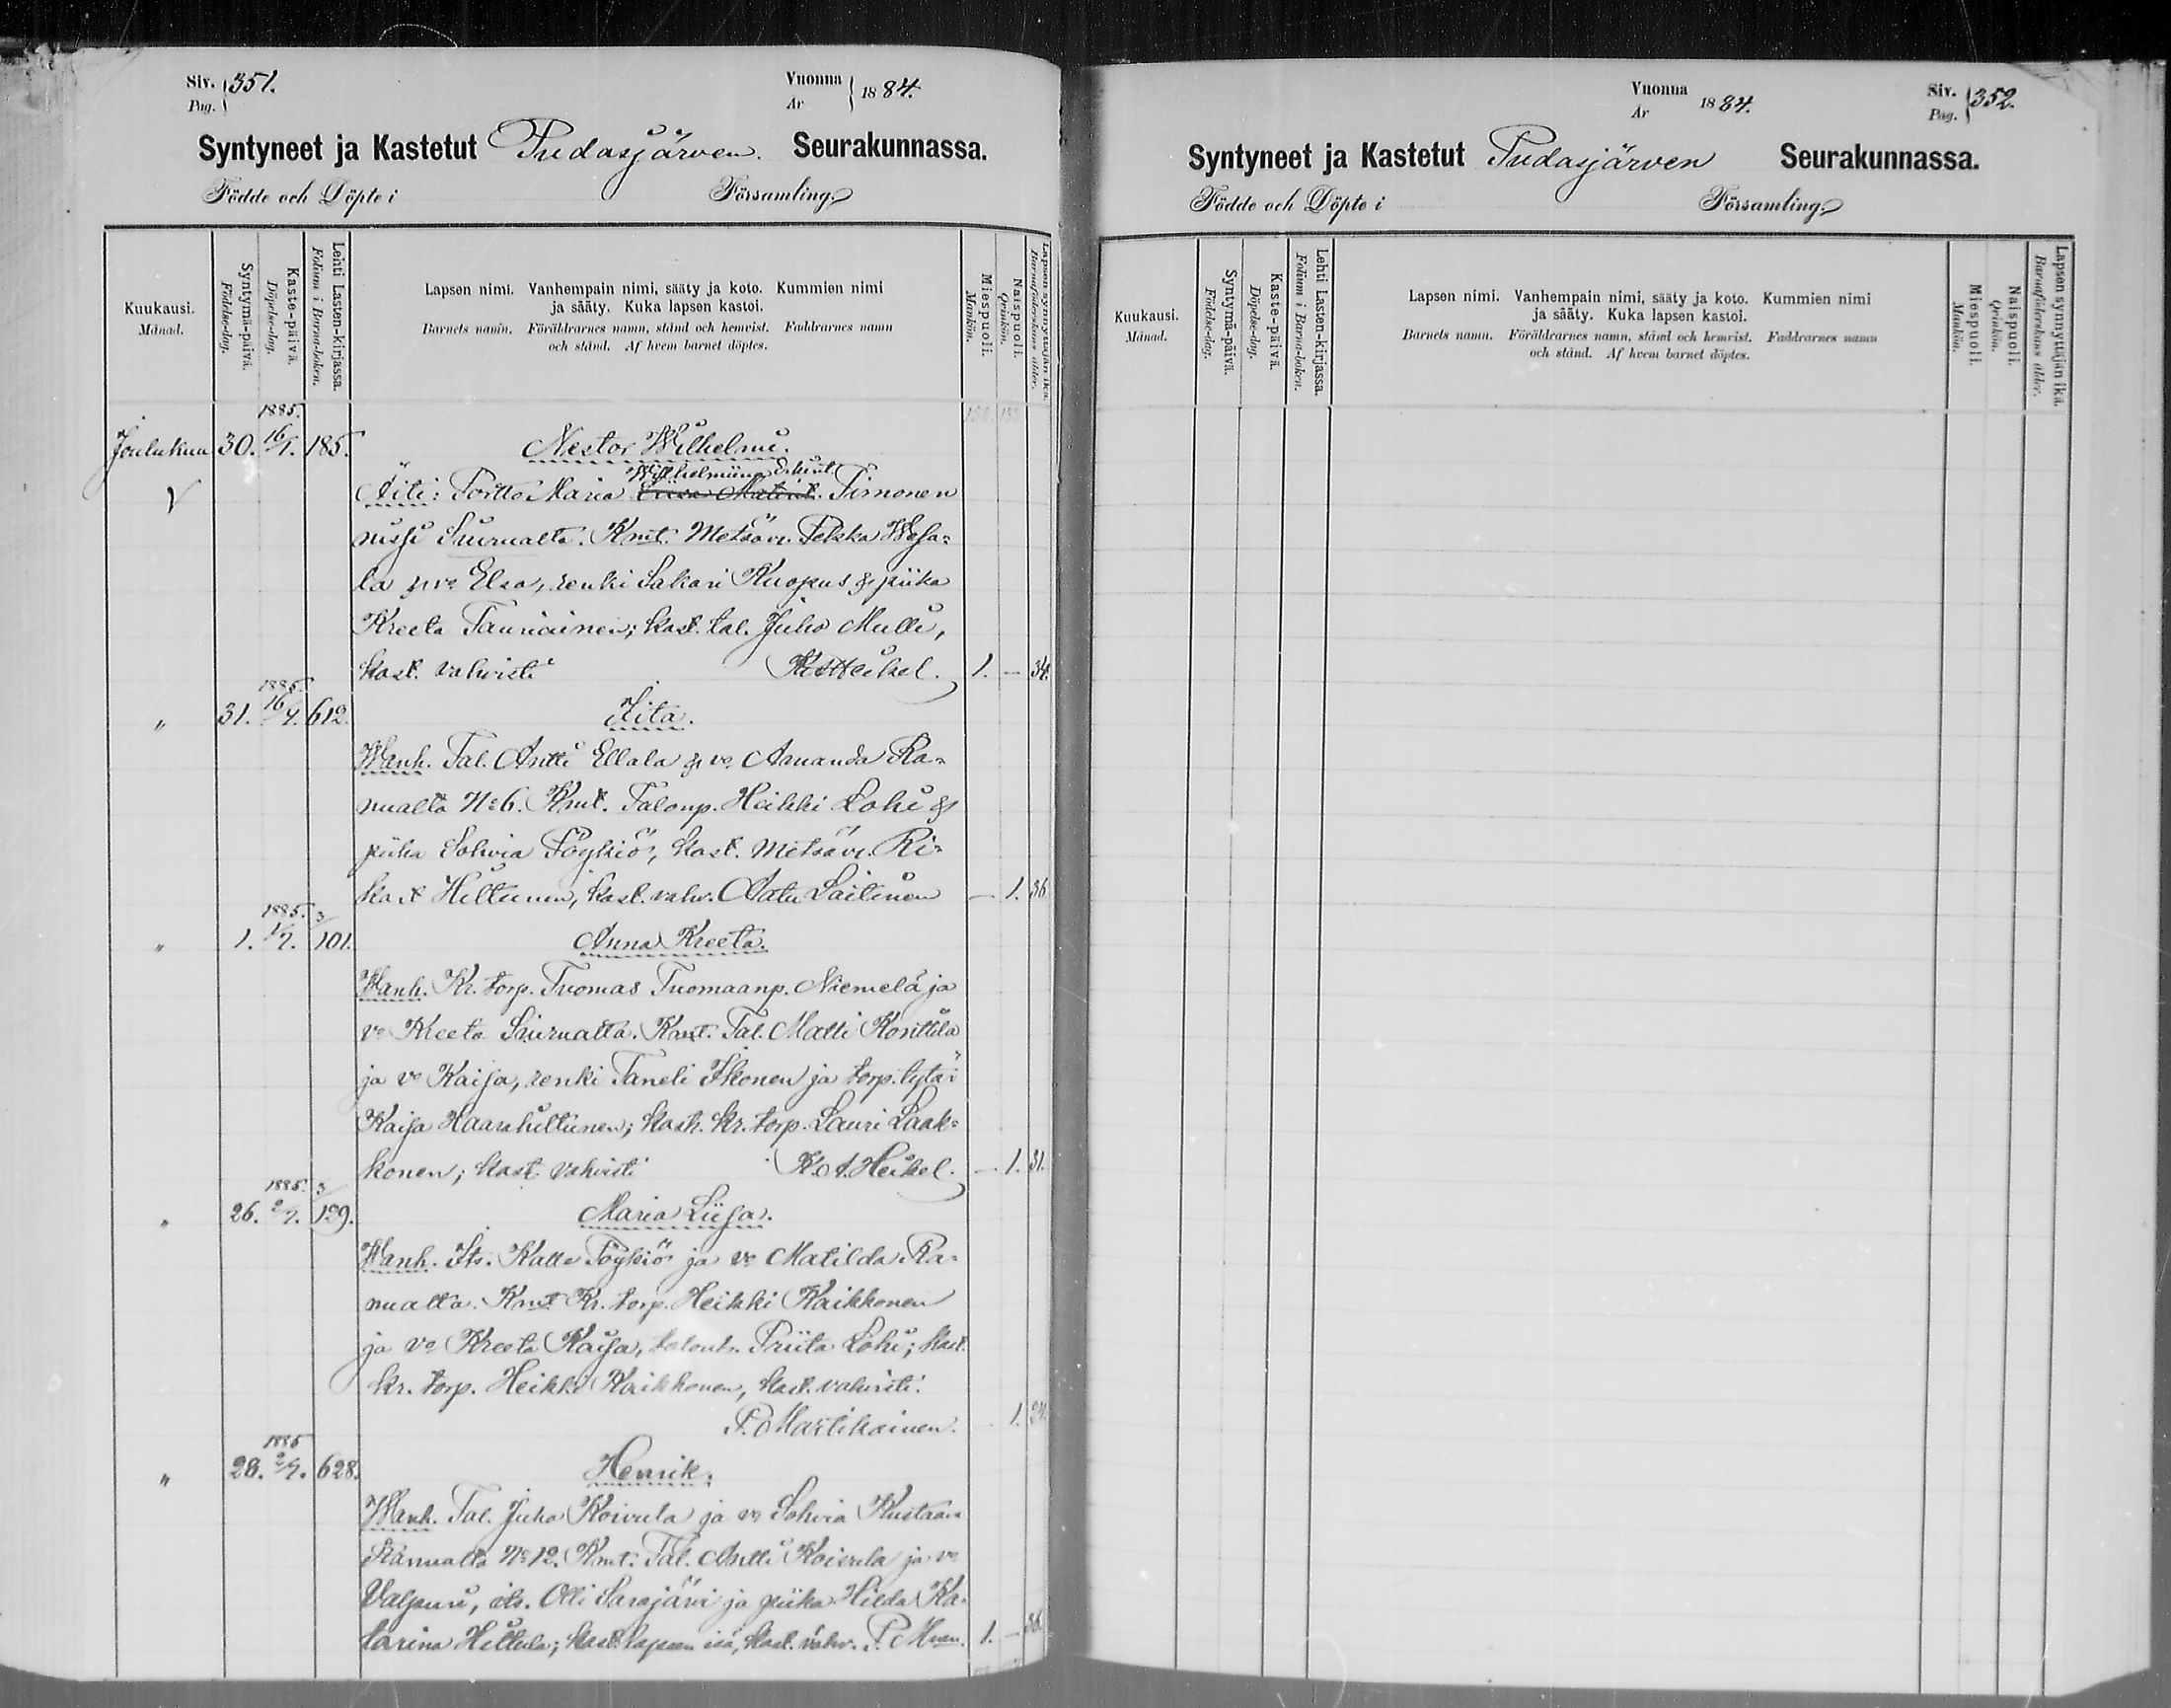 Siv. 351.
Pag.
Vuonna
År 1884.
Syntyneet ja Kastetut Pudasjärven. Seurakunnassa.
Födde och Döpte i Församling.
Kuukausi.
Månad.
Syntymä-päivä.
Födelse-dag.
Kaste-päivä.
Döpelse-dag.
Lehti Lasten-kirjassa.
Folium i Barna-boken.
Lapsen nimi. Vanhempain nimi, sääty ja koto. Kummien nimi
ja sääty. Kuka lapsen kastoi.
Barnets namn. Föräldrarnes namn, stånd och hemvist. Faddrarnes namn
och stånd. Af hvem barnet döptes.
Miespuoli.
Mankön.
Naispuoli.
Qvinkön.
Lapsen synnyttäjän ikä.
Barnaföderskans ålder.
1885.
Joulukuu 30. 16/1. 185. Nestor Wilhelmi.
Wilhelmiina Erkint.
Äiti: Portto Maria Eeva Matint. Timonen
V
Siurualta. Kmt. Metsäv. Pekka Wesa-
la ja vo Elsa, renki Sakari Kuopus & piika
Kreeta Tauriainen; kast. tal. Juho Mulli,
kast. vahvisti K A Heikel. 1. — 34.
1885.
" 31. 16/1. 612. Iita.
Wanh. Tal. Antti Ellala & vo Amanda Ra-
nualta No 6. Kmt. Talonp. Heikki Lohi &
piika Sohvia Pöykiö, kast. Metsäv. Ri-
kart Hiltunen, kast. vahv. Aatu Laitinen — 1. 36
1885. 3/
" 1. 1/2. 101. Anna Kreeta.
Wanh. Kr. torp. Tuomas Tuomaanp. Niemelä ja
vo Kreeta Siurualta. Kmt. Tal. Matti Konttila
ja vo Kaisa, renki Taneli Ikonen ja torp. tytär
Kaisa Haarahiltunen; kast. kr. torp. Lauri Laak-
konen; kast. vahvisti K. A. Heikel. — 1. 31.
1885. 3/
" 26. 2/2. 129. Maria Liisa.
Wanh. Its. Kalle Pöykiö ja vo Matilda Ra-
nualta. Kmt Kr. torp. Heikki Kaikkonen
ja vo Kreeta Kaisa, talont. Priita Lohi; kast.
kr. torp. Heikki Kaikkonen, kast. vahvisti.
P. Martikainen. — 1.
1885
" 28. 2/2. 628. Henrik.
Wanh. Tal. Juho Koivula ja vo Sohvia Kustaan
Ranualta No 12. Kmt. Tal. Antti Koivula ja vo
Valpuri, its. Olli Sarajärvi ja piika Hilda Ka-
tarina Hiltula; kast. lapsen isä, kast. vahv. P. Mnen. 1. — 36.
Vuonna
År 1884.
Siv. 352.
Pag.
Syntyneet ja Kastetut Pudasjärven Seurakunnassa.
Födde och Döpte i Församling.
Kuukausi.
Månad.
Syntymä-päivä.
Födelse-dag.
Kaste-päivä.
Döpelse-dag.
Lehti Lasten-kirjassa.
Folium i Barna-boken.
Lapsen nimi. Vanhempain nimi, sääty ja koto. Kummien nimi
ja sääty. Kuka lapsen kastoi.
Barnets namn. Föräldrarnes namn, stånd och hemvist. Faddrarnes namn
och stånd. Af hvem barnet döptes.
Miespuoli.
Mankön.
Naispuoli.
Qvinkön.
Lapsen synnyttäjän ikä.
Barnaföderskans ålder.